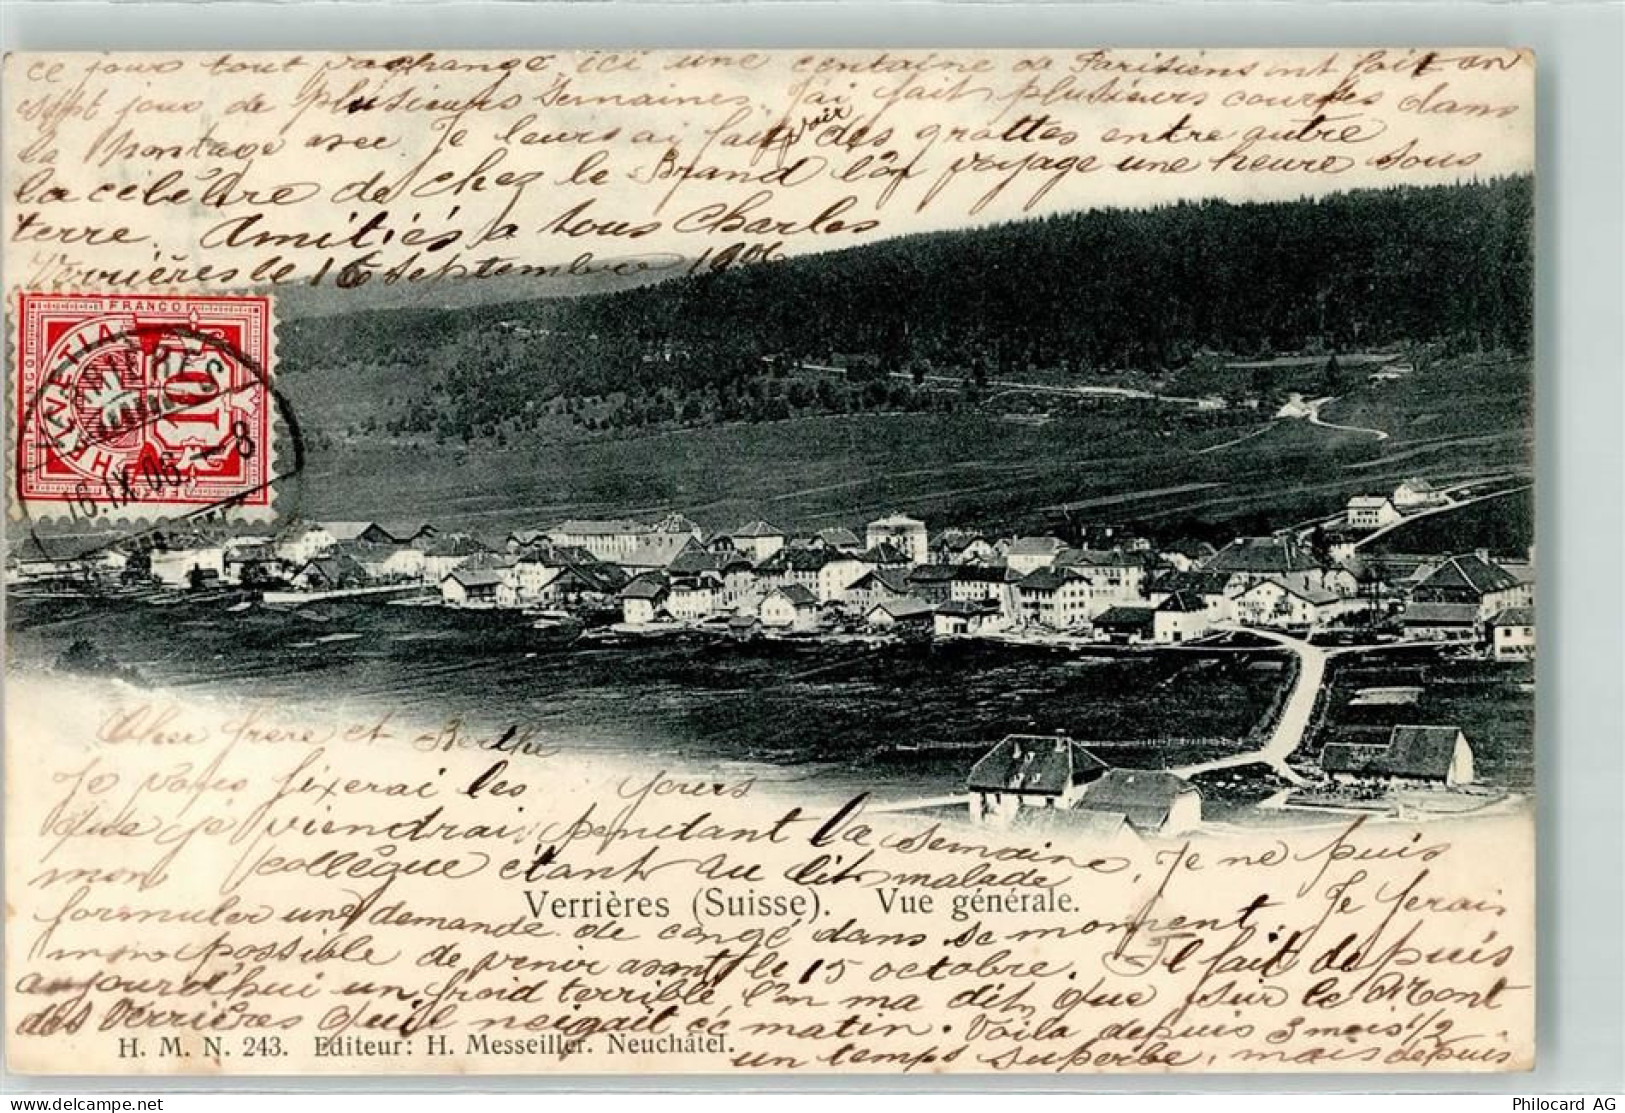 ce jour tout va change ici une centaine de Parisiens ont fait un
sejour de plusieurs semaines. J'ai fait plusieurs courses dans
la Montage avec Je leurs ai fait voir des grottes entre autre
la célèbre de chez le Brand l'on voyage une heure sous
terre. Amitiés a tous Charles
Verrières le 16 Septembre 1906
FRANCO
HELVETIA
10
VERRIERES
16.IX.06. – 8
Cher frere et Berthe
Je vous fixerai les jours
que je viendrai pendant la semaine, Je ne puis
mon collègue étant au lit malade
Verrières (Suisse). Vue générale.
formuler une demande de congé dans ce moment. Je ferais
mon possible de venir avant le 15 octobre. Il fait depuis
aujourd'hui un froid terrible, l'on ma dit que sur le Mont
des Verrières qu'il neigait ce matin. Voila depuis 3 mois 1/2
H. M. N. 243. Editeur: H. Messeiller. Neuchâtel.
un temps superbe, mais depuis
delcampe.net
Philocard AG